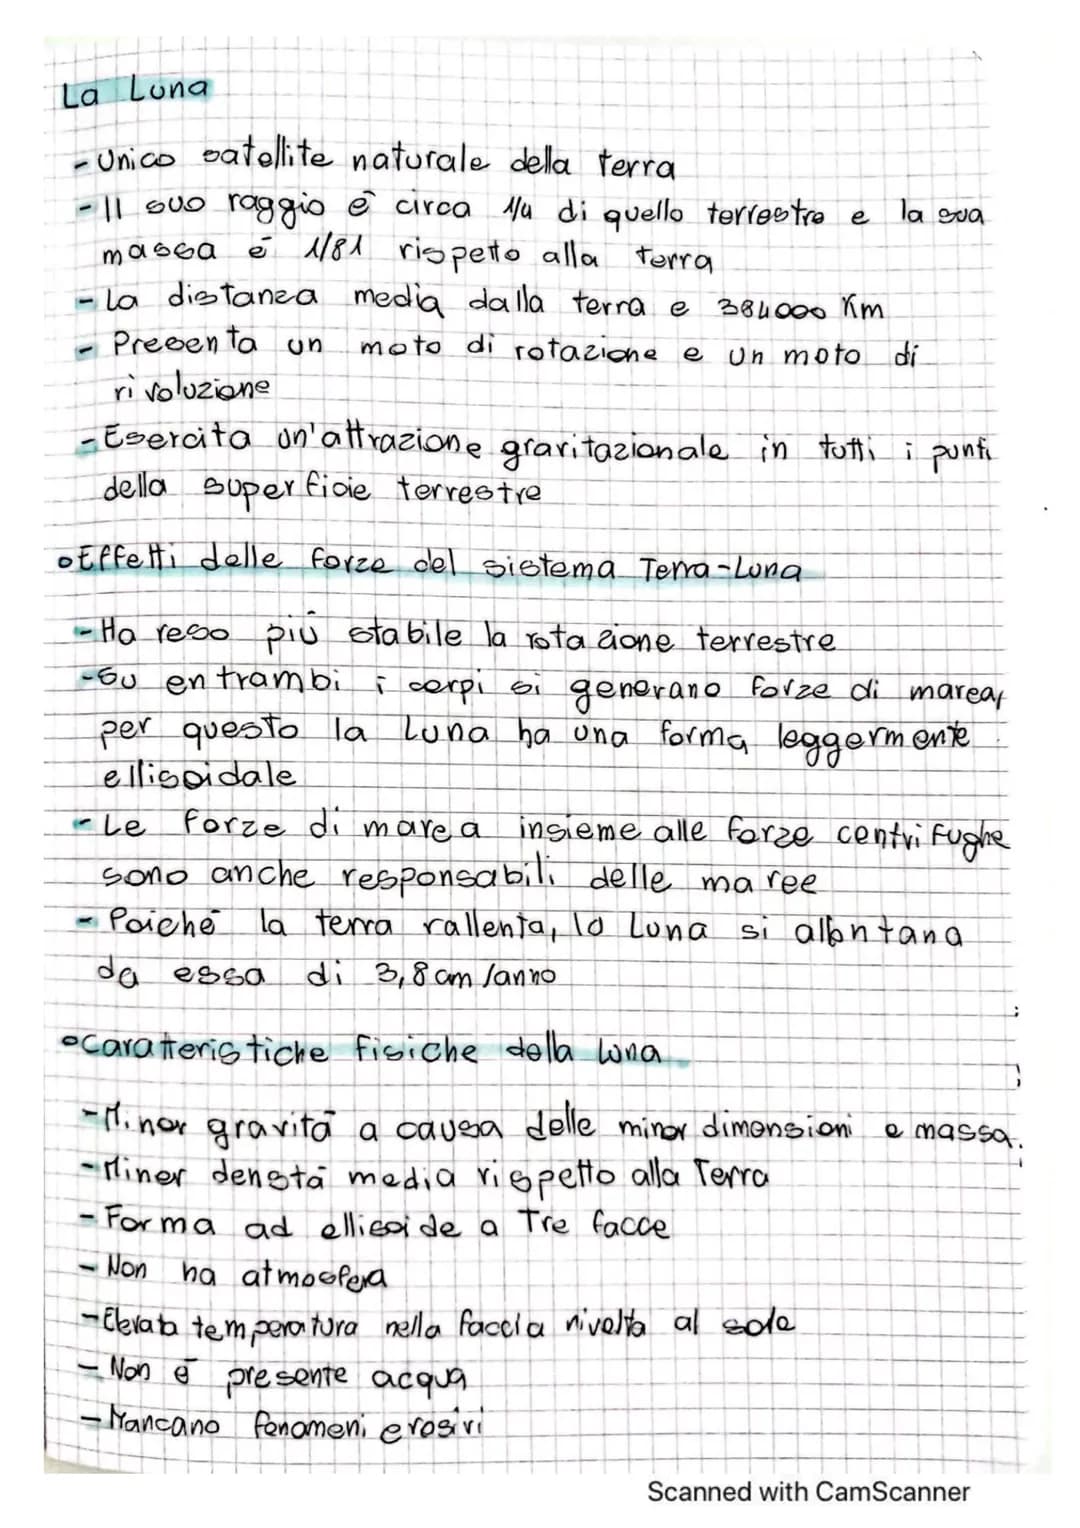 La Luna
- Unico satellite naturale della terra
- Il suo raggio è circa 1/4 di quello terrestre e la sua
massa è 1/81 rispetto alla terra
- La distanza media dalla terra e 384000 Km
- Presenta un moto di rotazione e un moto di
rivoluzione
- Esercita un'attrazione gravitazionale in tutti i punti
della superficie terrestre
• Effetti delle forze del sistema Terra-Luna
- Ha reso più stabile la rotazione terrestre
- Su entrambi i corpi si generano forze di marea,
per questo la Luna ha una forma leggermente
ellissoidale
- Le forze di marea insieme alle forze centrifughe
sono anche responsabili delle maree
- Poiché la terra rallenta, la Luna si allontana
da essa di 3,8 cm/anno
• Caratteristiche fisiche della luna
- Minor gravità a causa delle minor dimensioni e massa.
- Minor denstà media rispetto alla Terra
- Forma ad ellissoide a Tre facce
- Non ha atmosfera
- Elevata temperatura nella faccia rivolta al sole
- Non è presente acqua
- Mancano fenomeni erosivi
Scanned with CamScanner